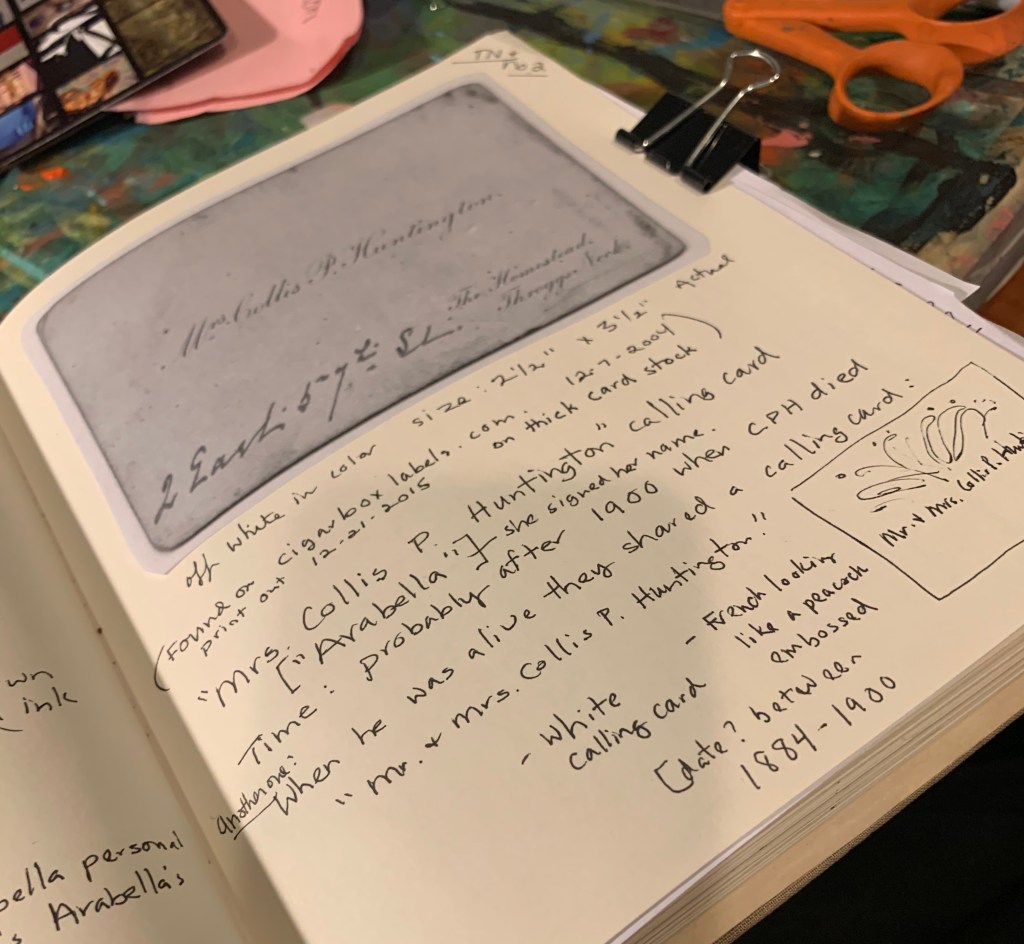 Mrs. Collis P. Huntington.
The Homestead,
Throggs Neck.
2 East. 57th St.
off white in color size: 2 1/2" x 3 1/2" Actual
(Found on cigarboxlabels.com 12-7-2004)
print out 12-21-2015 on thick card stock
"Mrs. Collis P. Huntington" calling card
["Arabella"] she signed her name.
Time: probably after 1900 when CPH died
Another one:
When he was alive they shared a calling card:
"Mr. & Mrs. Collis P. Huntington."
- White
calling card
- French looking
like a peacock
embossed
[date? between
1884-1900
Mr. & Mrs. Collis P. Hunti
wn
ink
bella personal
s Arabella's